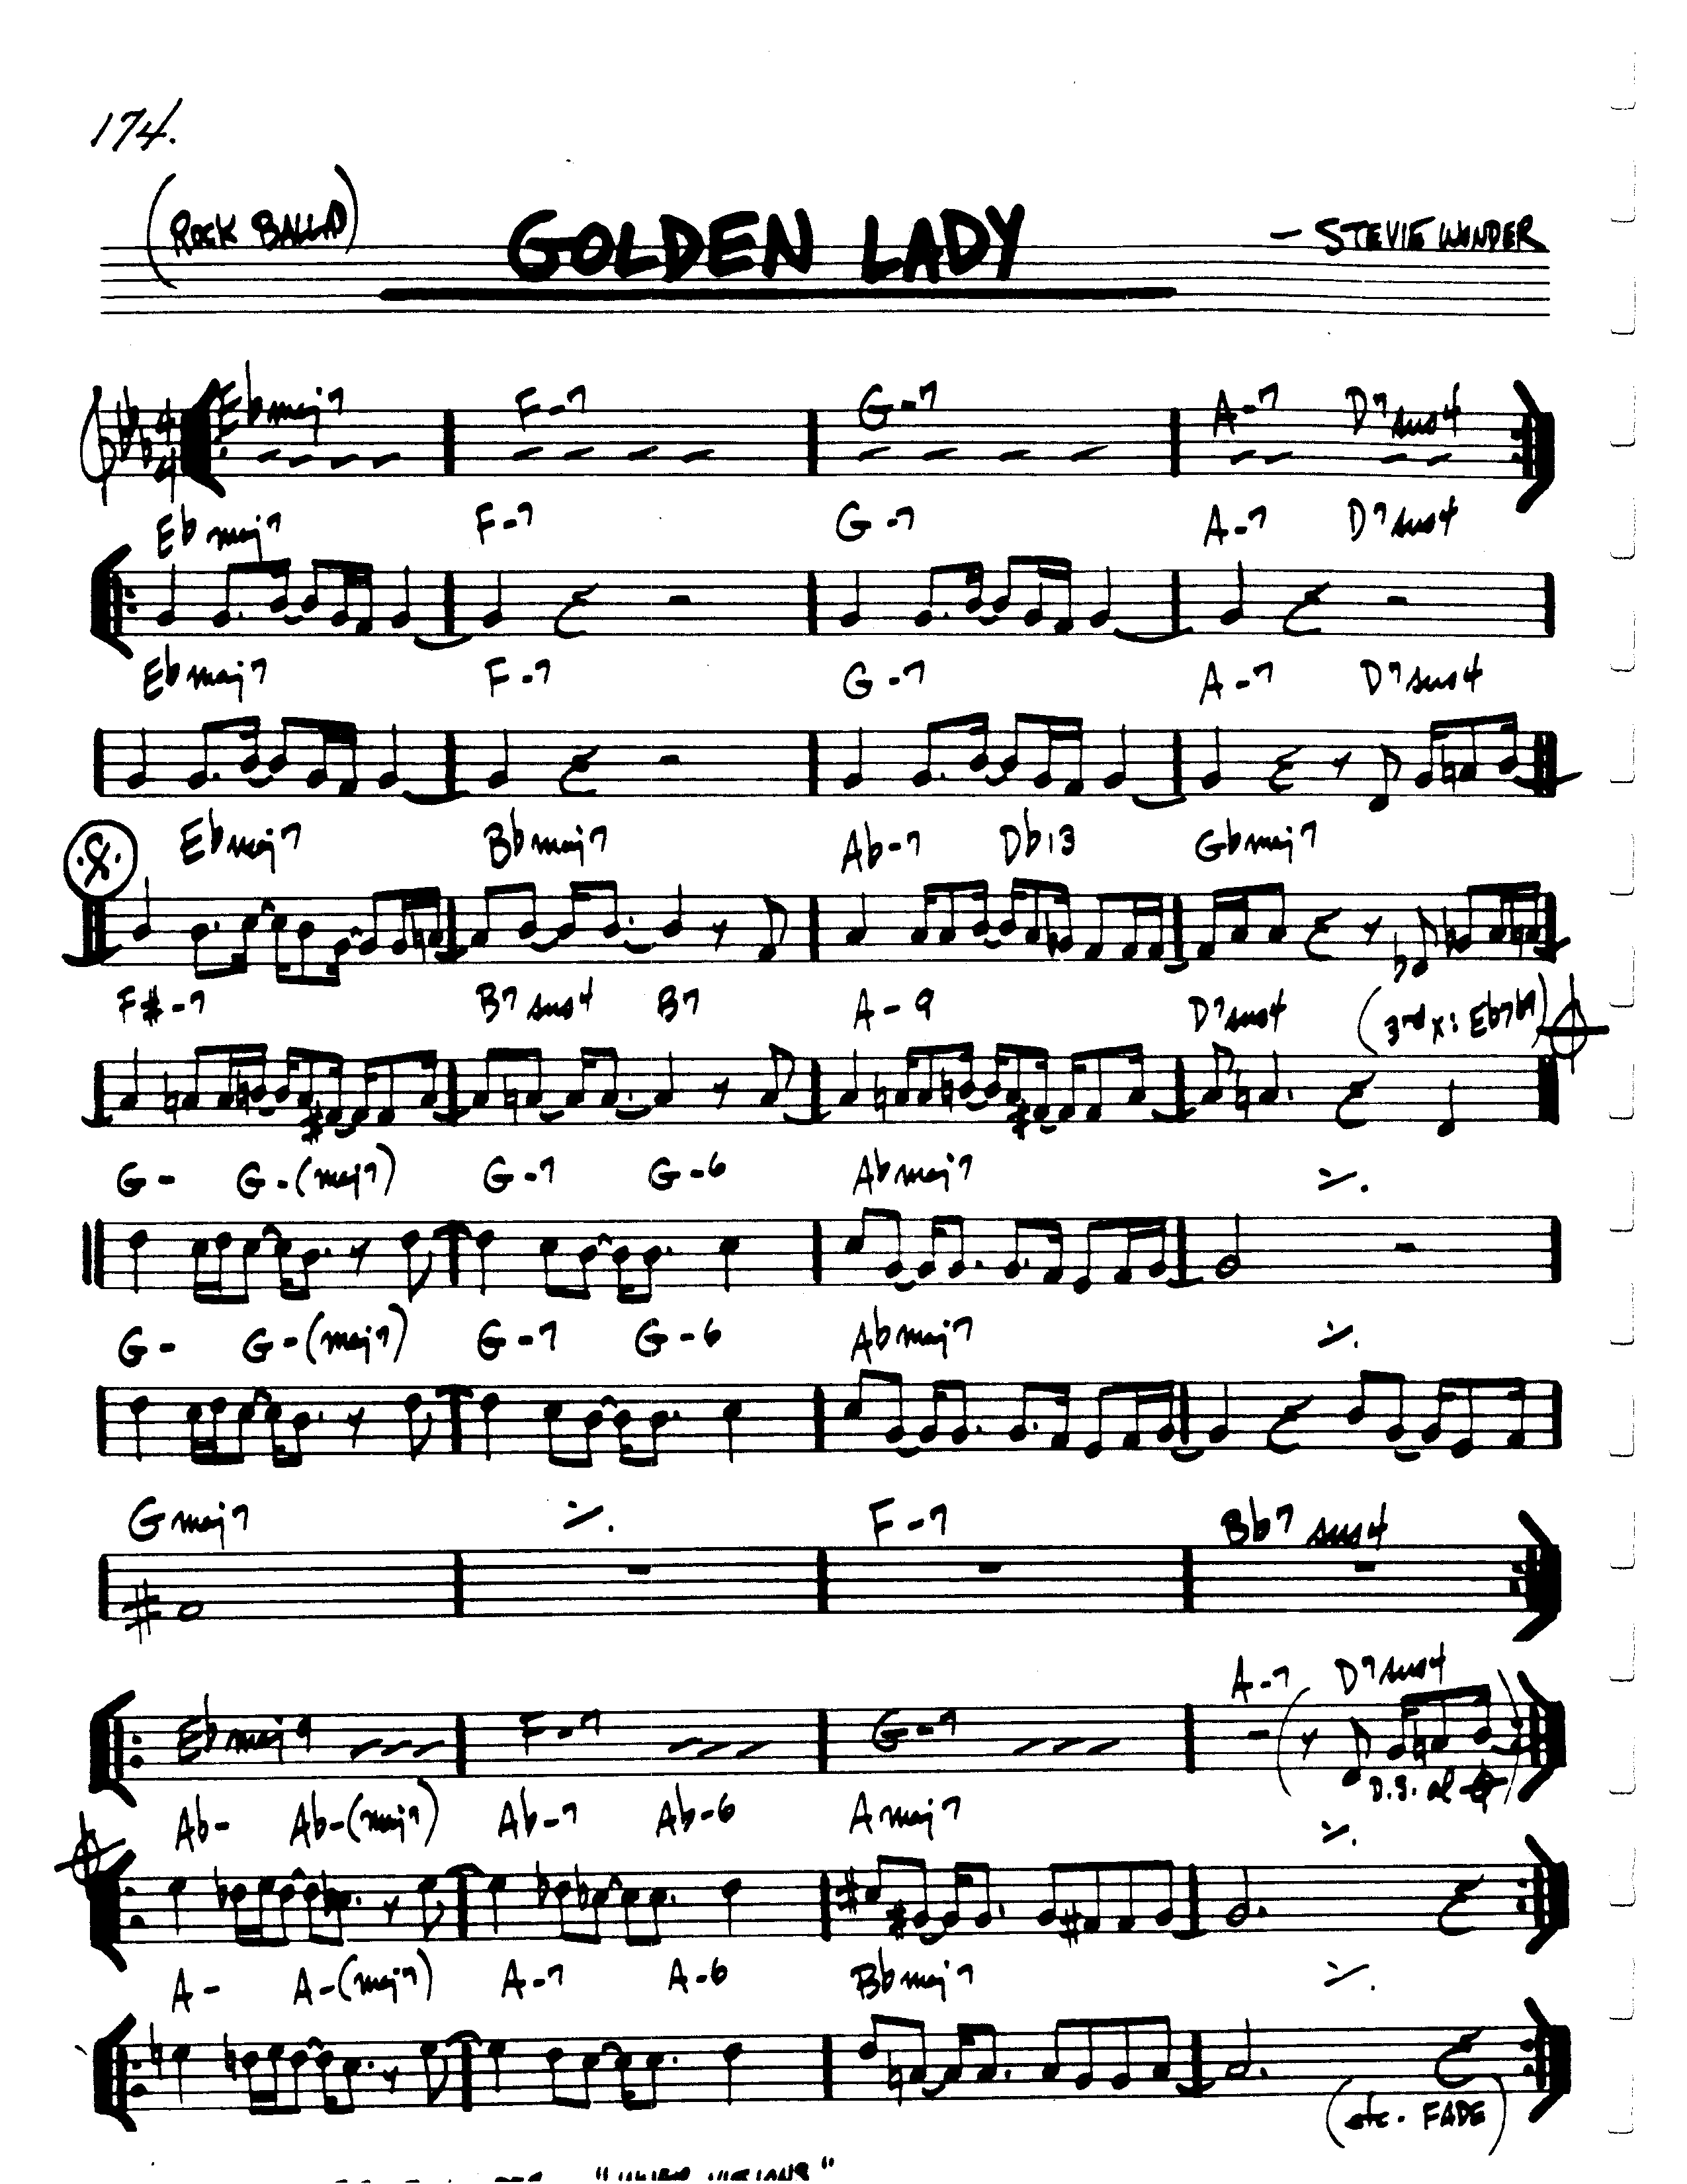 174.
(ROCK BALLAD) GOLDEN LADY — STEVIE WONDER
Ebmaj7 F-7 G-7 A-7 D7sus4
Ebmaj7 F-7 G-7 A-7 D7sus4
Ebmaj7 F-7 G-7 A-7 D7sus4
Ebmaj7 Bbmaj7 Ab-7 Db13 Gbmaj7
F#-7 B7sus4 B7 A-9 D7sus4 (3rd x: Eb7b9)
G- G-(maj7) G-7 G-6 Abmaj7
G- G-(maj7) G-7 G-6 Abmaj7
Gmaj7 F-7 Bb7sus4
Ebmaj7 F-7 G-7 A-7 D7sus4
D.S. al
Ab- Ab-(maj7) Ab-7 Ab-6 Amaj7
A- A-(maj7) A-7 A-6 Bbmaj7
(etc. FADE)